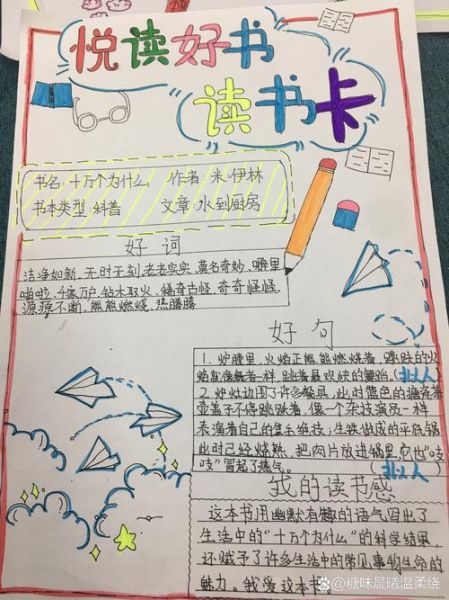 悦读好书
读书卡
书名:十万个为什么 作者:米·伊林
书本类型:科普 文章:水到厨房
好词
洁净如新、无时无刻、老老实实、莫名奇妙、噼里
啪啦、千家万户、钻木取火、稀奇古怪、奇奇怪怪、
源源不断、熊熊燃烧、热腾腾
好句
1. 炉膛里,火焰正熊熊燃烧着,跳跃的火
焰就像舞者一样,跳着最欢快的舞蹈。(拟人)
2. 炉灶边围了许多餐具,此时蓝色的搪瓷茶
壶盖子不停跳跃着,像一个杂技演员一样
表演着自己的拿手绝技;生铁做成的平底锅
此时已经烧熟,把肉片放进锅里,它也“吱
吱”冒起了热气。(拟人)
我的读书感
这本书用幽默有趣的语气写出了
生活中的“十万个为什么”的科学结果,
还赋予了许多生活中的常见事物生命的
魅力。我爱这本书
@糖味晨曦温柔绕